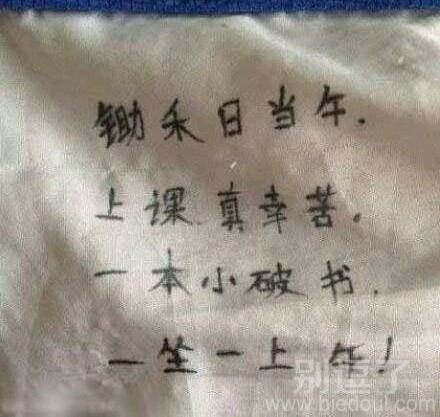 锄禾日当午.
上课真幸苦。
一本小破书.
一坐一上午!
别逗了
www.biedoul.com